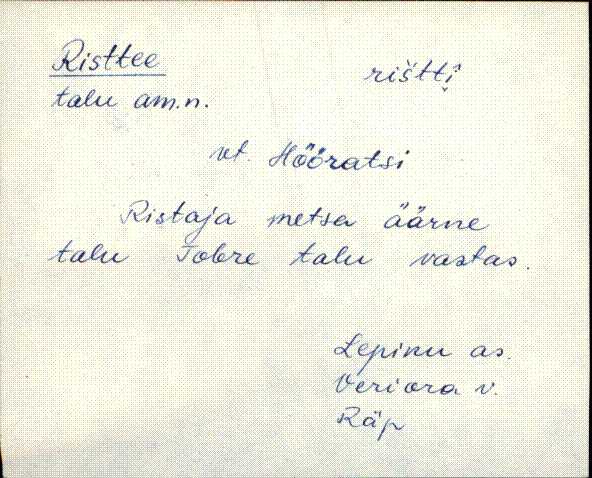 Risttee rišttî̬
talu am.n.
vt. Hööratsi
Ristaja metsa äärne
talu Tobre talu vastas.
Lepinu as.
Veriora v.
Räp